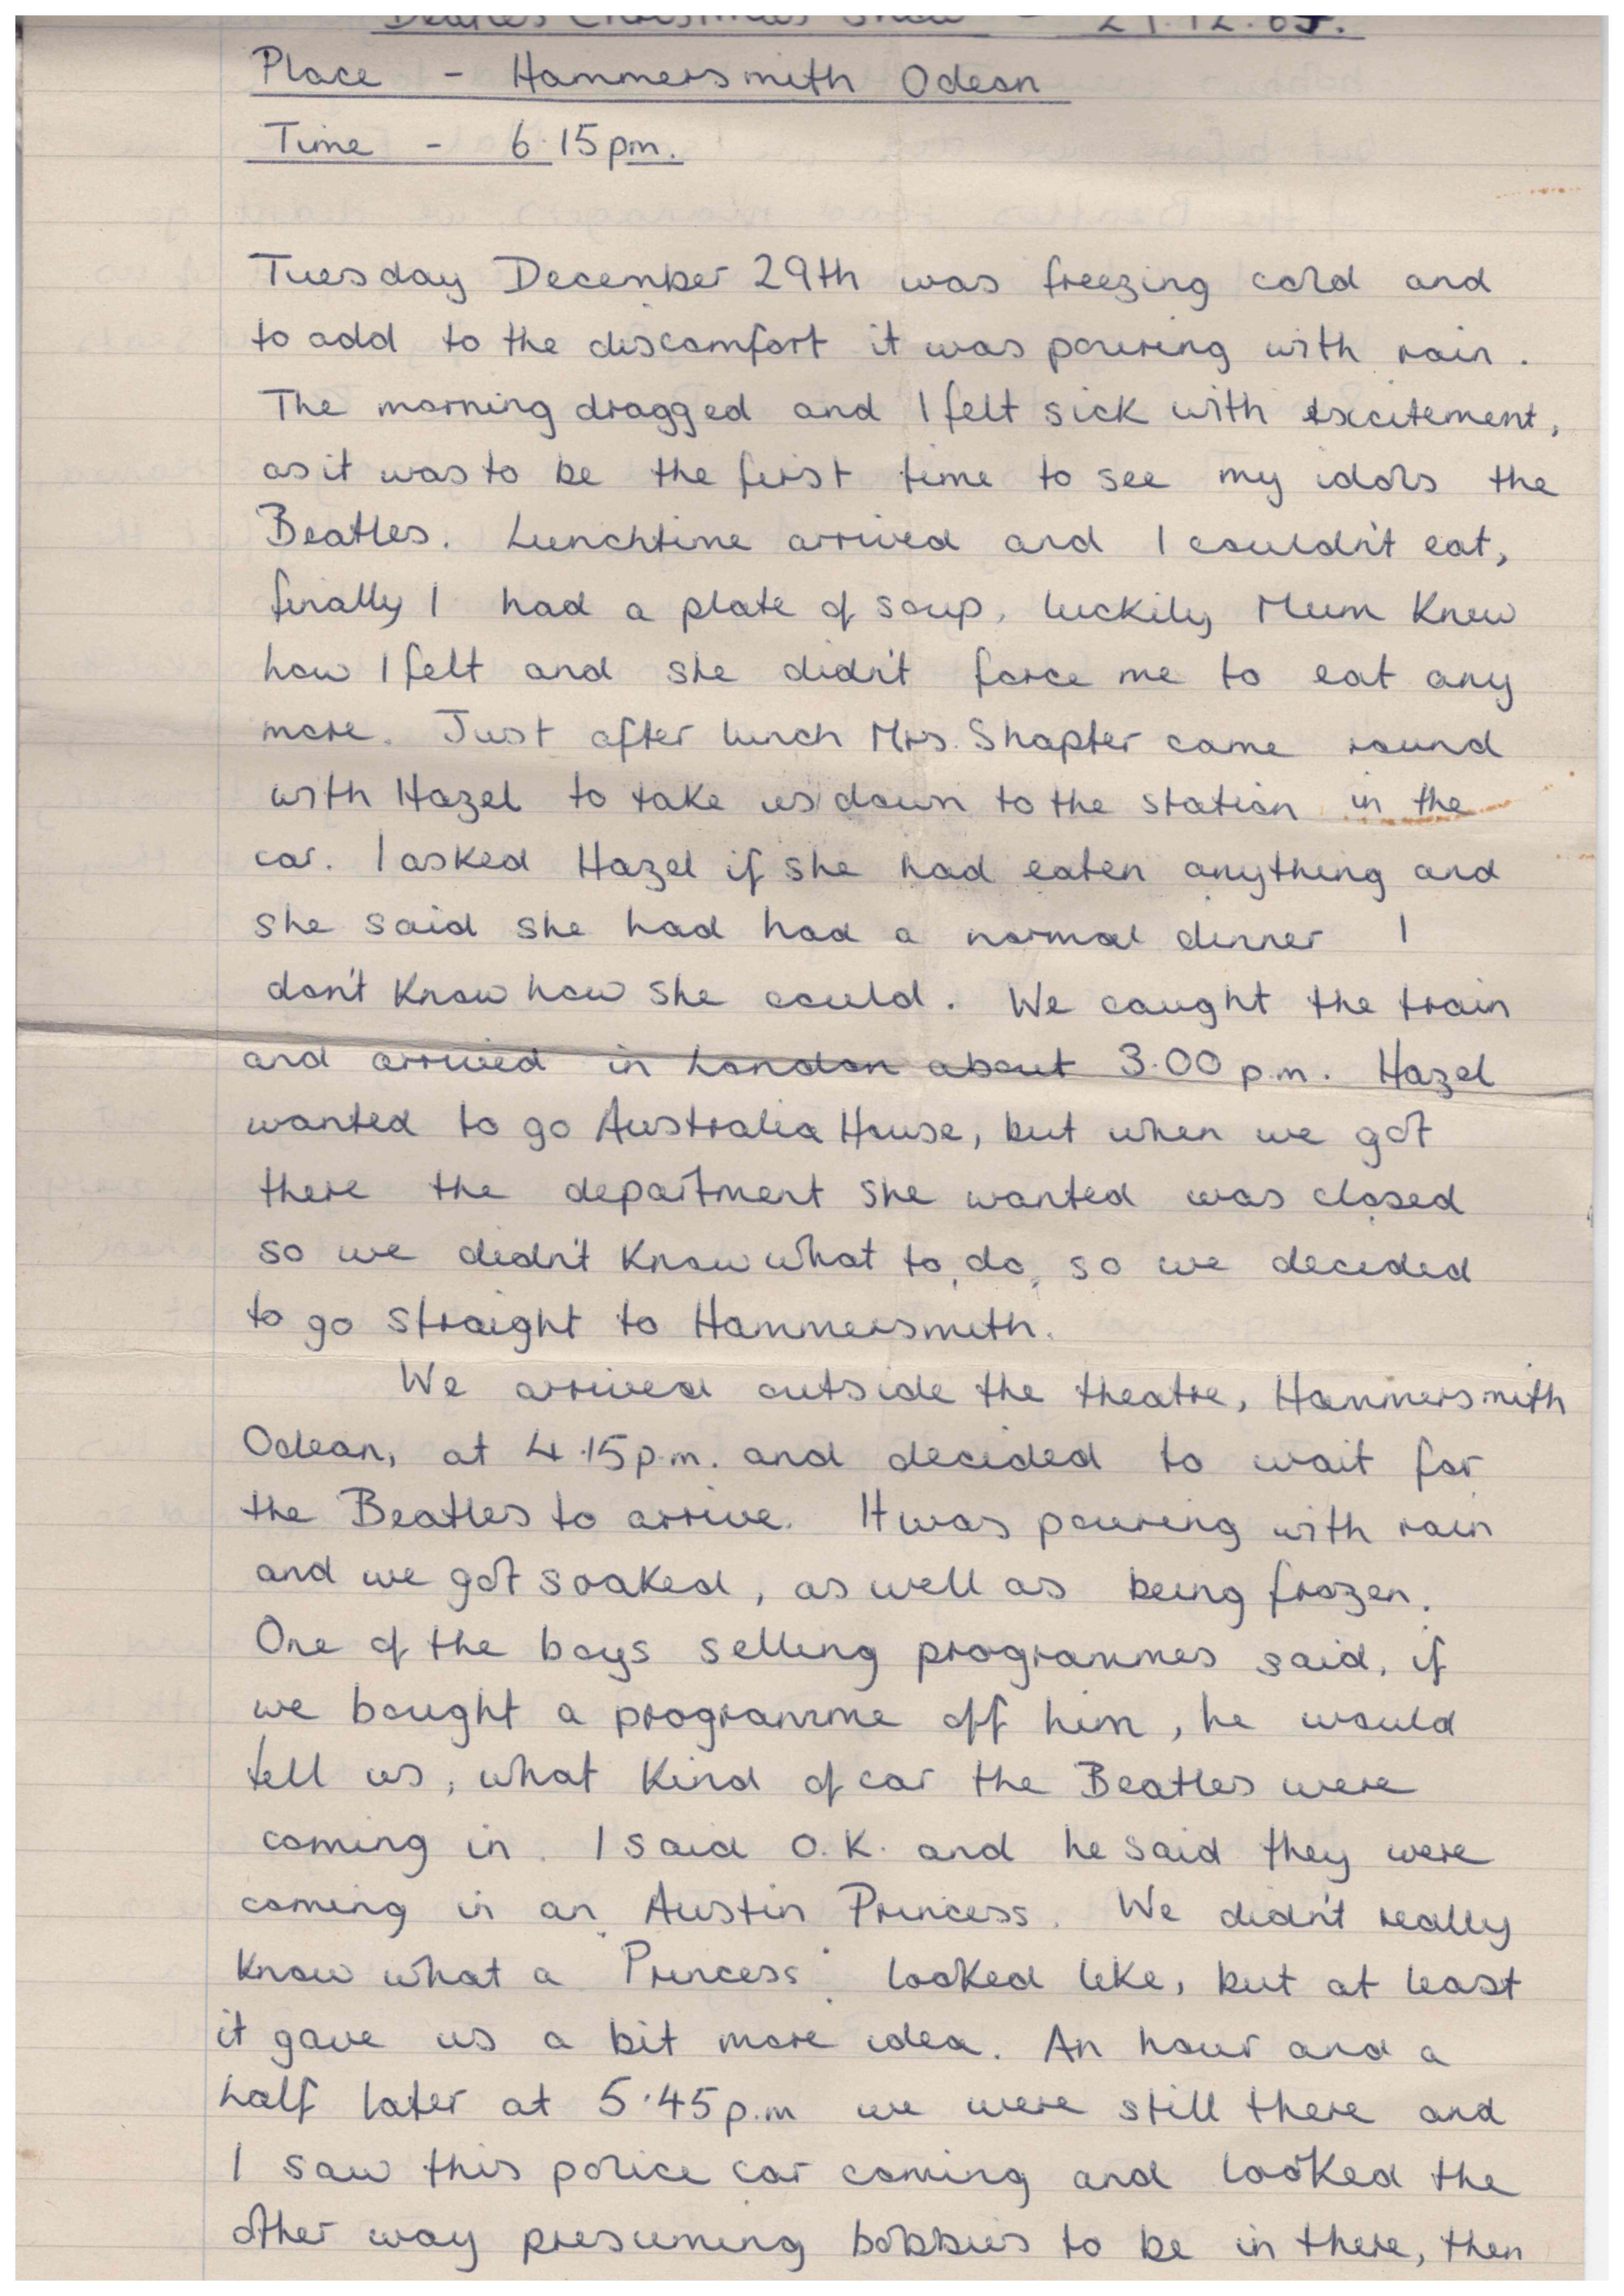 Beatles Christmas Show - 29.12.65.
Place - Hammersmith Odeon
Time - 6.15pm.
Tuesday December 29th was freezing cold and
to add to the discomfort it was pouring with rain.
The morning dragged and I felt sick with excitement,
as it was to be the first time to see my idols the
Beatles. Lunchtime arrived and I couldn't eat,
finally I had a plate of soup, luckily Mum knew
how I felt and she didn't force me to eat any
more. Just after lunch Mrs. Shapter came round
with Hazel to take us down to the station in the
car. I asked Hazel if she had eaten anything and
she said she had had a normal dinner I
don't know how she could. We caught the train
and arrived in London about 3.00 p.m. Hazel
wanted to go Australia House, but when we got
there the department she wanted was closed
so we didn't know what to do, so we decided
to go straight to Hammersmith.
We arrived outside the theatre, Hammersmith
Odeon, at 4.15p.m. and decided to wait for
the Beatles to arrive. It was pouring with rain
and we got soaked, as well as being frozen.
One of the boys selling programmes said, if
we bought a programme off him, he would
tell us, what kind of car the Beatles were
coming in. I said O.K. and he said they were
coming in an Austin Princess. We didn't really
know what a "Princess" looked like, but at least
it gave us a bit more idea. An hour and a
half later at 5.45p.m we were still there and
I saw this police car coming and looked the
other way presuming bobbies to be in there, then